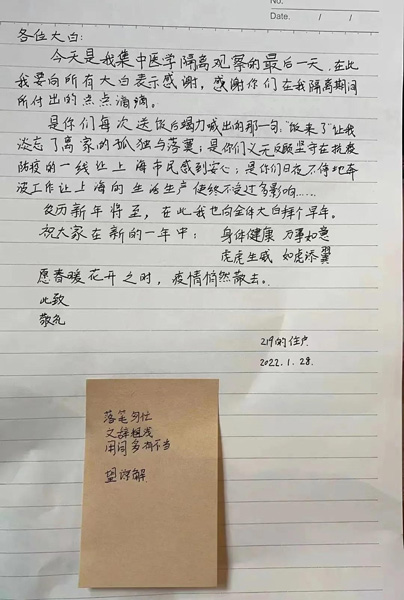 No.
Date. / /
各位大白:
今天是我集中医学隔离观察的最后一天,在此
我要向所有大白表示感谢,感谢你们在我隔离期间
所付出的点点滴滴。
是你们每次送饭后竭力喊出的那一句:"饭来了"让我
淡忘了离家的孤独与落寞;是你们义无反顾坚守在抗疫
防疫的一线让上海市民感到安心;是你们日夜不停地奔
波工作让上海的生活生产使终不受过多影响……
农历新年将至,在此我也向全体大白拜个早年。
祝大家在新的一年中: 身体健康 万事如意
虎虎生威 如虎添翼
愿春暖花开之时,疫情悄然散去。
此致
敬礼
219的住户
2022.1.28.
落笔匆忙
文辞粗浅
用词多有不当
望谅解